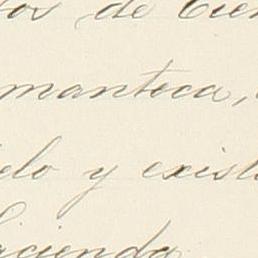 tos de Cien
manteca,
ido y exist
acienda